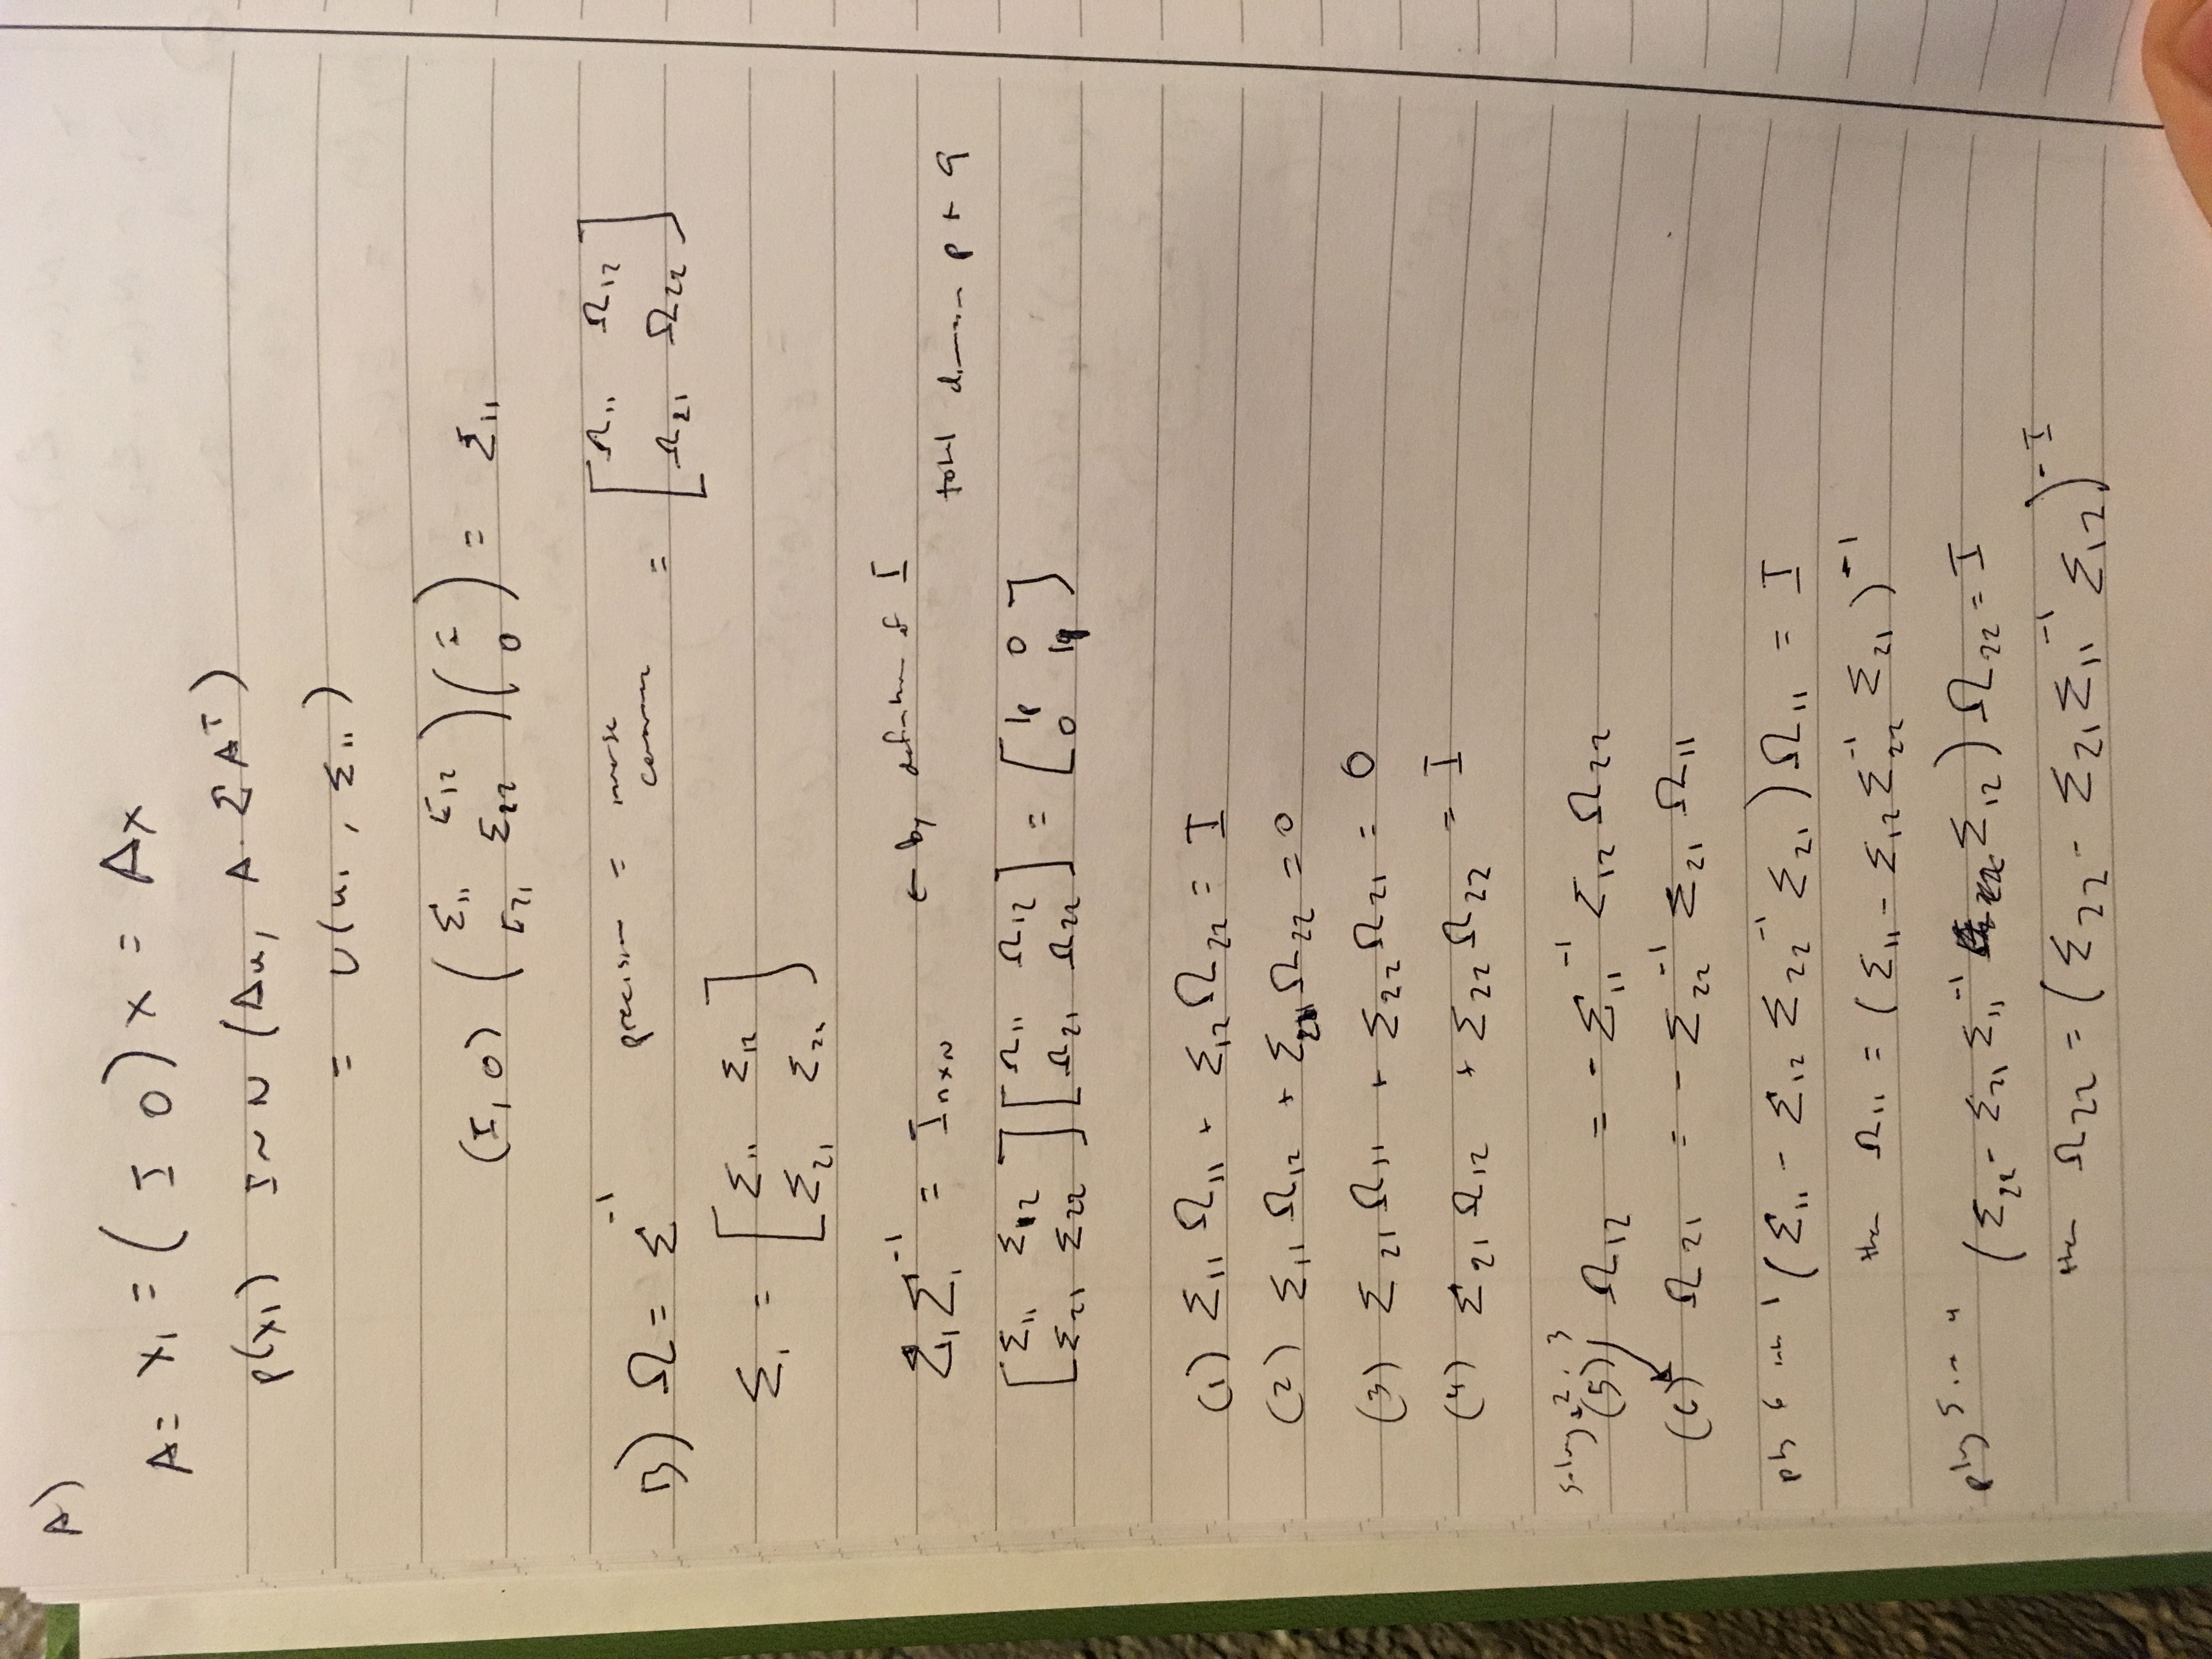 A)
A = x₁ = ( I 0 ) x = Ax
p(x₁) I ~ N (Au, A · Σ Aᵀ)
= N(u₁ , Σ₁₁)
(I, 0) ( Σ₁₁ Σ₁₂ ) ( I ) = Σ₁₁
Σ₂₁ Σ₂₂ 0
B) Ω = Σ⁻¹ precision = inverse = [ Ω₁₁ Ω₁₂
Ω₂₁ Ω₂₂ ]
Σ₁ = [ Σ₁₁ Σ₁₂
Σ₂₁ Σ₂₂ ]
Σ₁ Σ₁⁻¹ = I n×n ← by definition of I
total dimension p + q
[ Σ₁₁ Σ₁₂ ] [ Ω₁₁ Ω₁₂ ] = [ 1p 0 ]
[ Σ₂₁ Σ₂₂ ] [ Ω₂₁ Ω₂₂ ] [ 0 1q ]
(1) Σ₁₁ Ω₁₁ + Σ₁₂ Ω₂₂ = I
(2) Σ₁₁ Ω₁₂ + Σ Ω₂₂ = 0
(3) Σ₂₁ Ω₁₁ + Σ₂₂ Ω₂₁ = 0
(4) Σ₂₁ Ω₁₂ + Σ₂₂ Ω₂₂ = I
solving 2, 3
(5) Ω₁₂ = - Σ₁₁⁻¹ Σ₁₂ Ω₂₂
(6) Ω₂₁ = - Σ₂₂⁻¹ Σ₂₁ Ω₁₁
plg 6 into 1 (Σ₁₁ - Σ₁₂ Σ₂₂⁻¹ Σ₂₁) Ω₁₁ = I
then Ω₁₁ = (Σ₁₁ - Σ₁₂ Σ₂₂⁻¹ Σ₂₁)⁻¹
plug 5 in 4 (Σ₂₂ - Σ₂₁ Σ₁₁⁻¹ Σ₁₂) Ω₂₂ = I
then Ω₂₂ = (Σ₂₂ - Σ₂₁ Σ₁₁⁻¹ Σ₁₂)⁻ᴵ